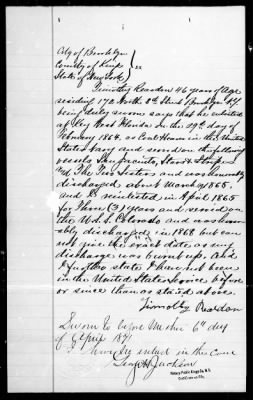 City of Brooklyn
County of Kings } ss
State of New York
Timothy Reardon 46 years of age
residing 172 North 8th Street Brooklyn NY
being duly sworn says that he enlisted
at Key West Florida on the 19th day of
February 1864, as Coal Heaver in the United
States Navy and served on the following
vessels San Jacinto, Stars & Stripes
and The Two Sisters and was honorably
discharged about March 1865,
and reenlisted in April 1865
for Three (3) years and served on
the U.S.S. Colorado and was honor-
ably discharged in 1868 but can
not give the exact date as my
discharge was burnt up. And
I further state I have not been
in the United States Service before
or since than as stated above.
Timothy Reardon
Sworn to before me this 6th day
of April 1891
I have no interest in the case
Notary Public Kings Co. N.Y.